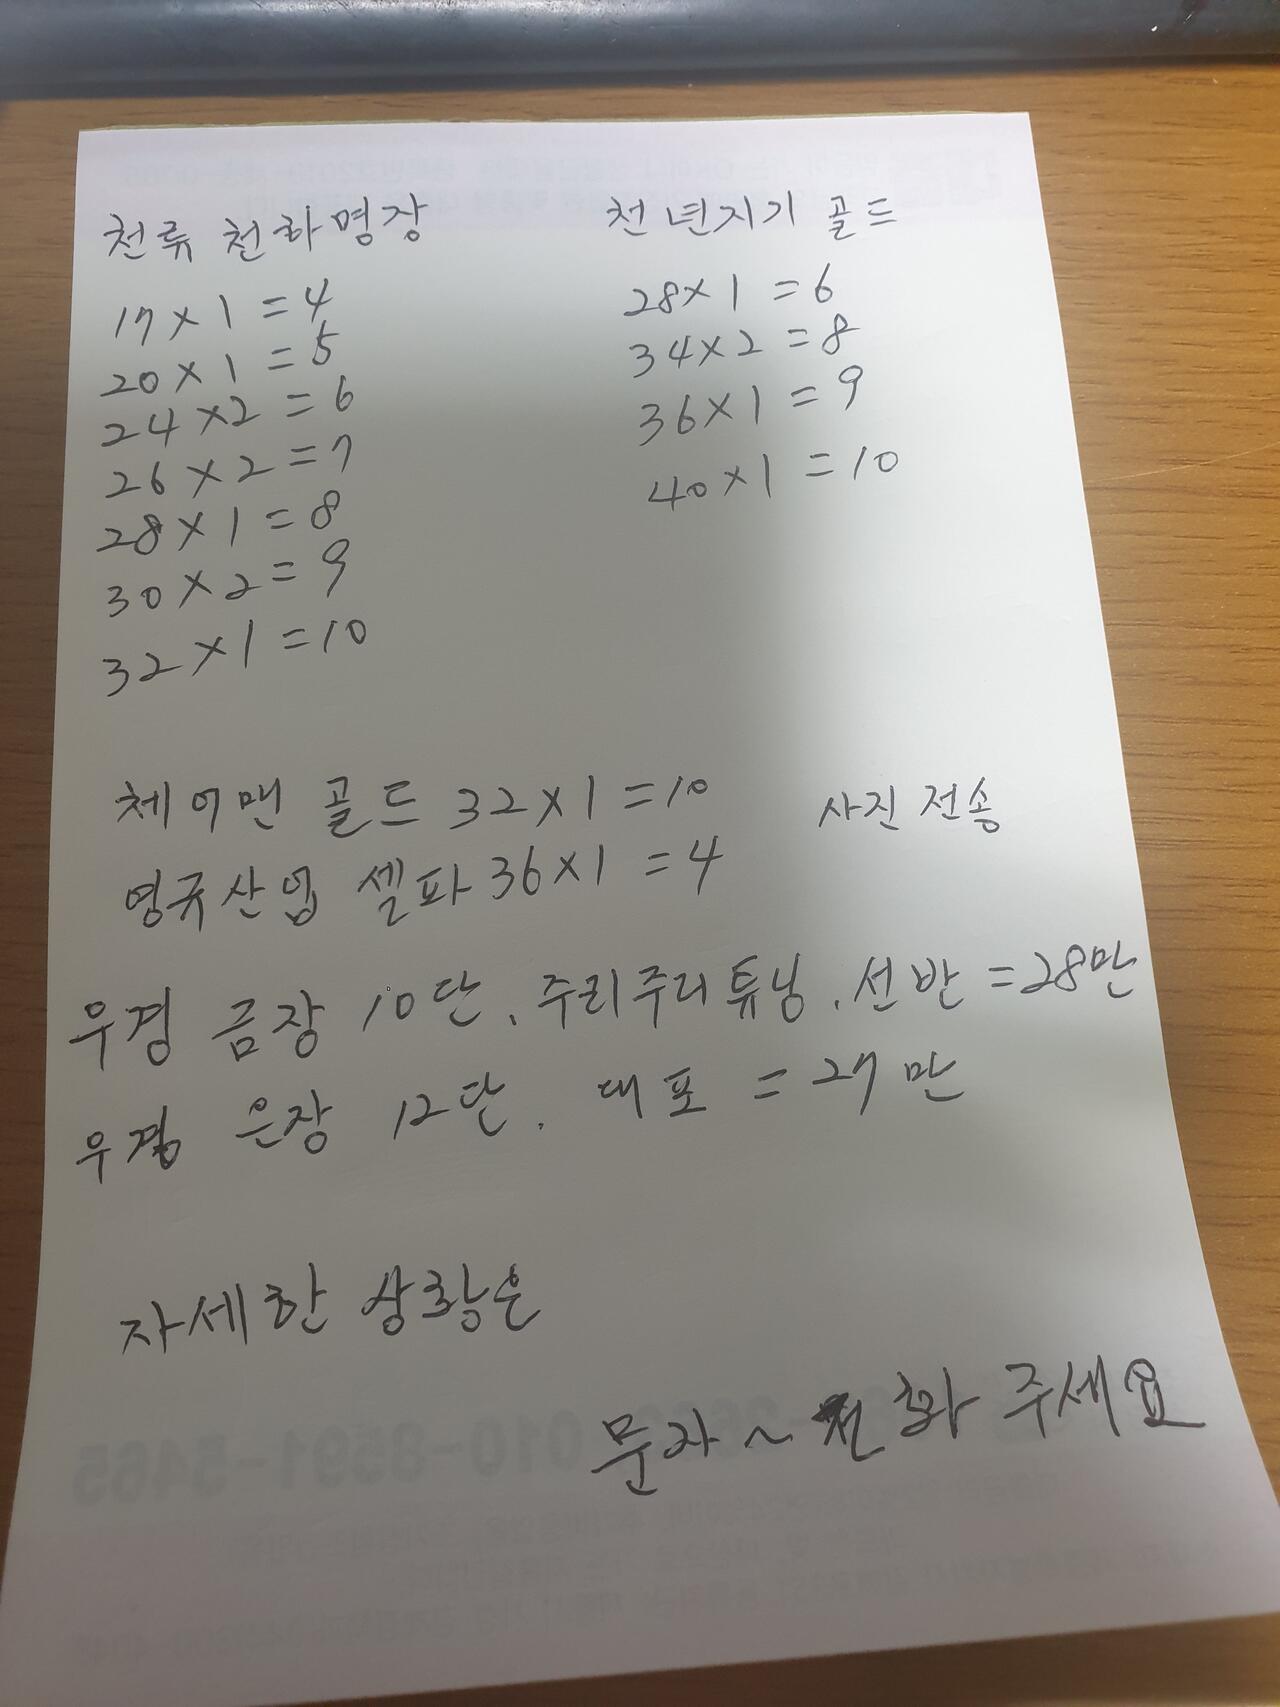 천류 천하명장
17×1=4
20×1=5
24×2=6
26×2=7
28×1=8
30×2=9
32×1=10
천년지기 골드
28×1=6
34×2=8
36×1=9
40×1=10
체어맨 골드 32×1=10 사진전송
영규산업 셀파 36×1=4
우경 금장 10단, 주리주리튜닝, 선반=28만
우경 은장 12단, 대포=27만
자세한 상황은
문자~전화 주세요
010-8591-5465